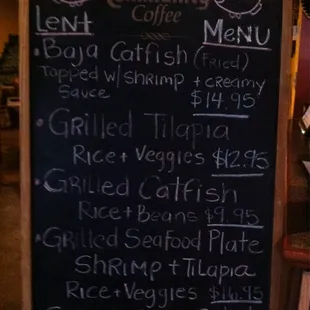 Community
Coffee
Lent Menu
• Baja Catfish (Fried)
Topped w/ Shrimp + creamy
Sauce $14.95
• Grilled Tilapia
Rice + Veggies $12.95
• Grilled Catfish
Rice + Beans $9.95
• Grilled Seafood Plate
Shrimp + Tilapia
Rice + Veggies $16.95